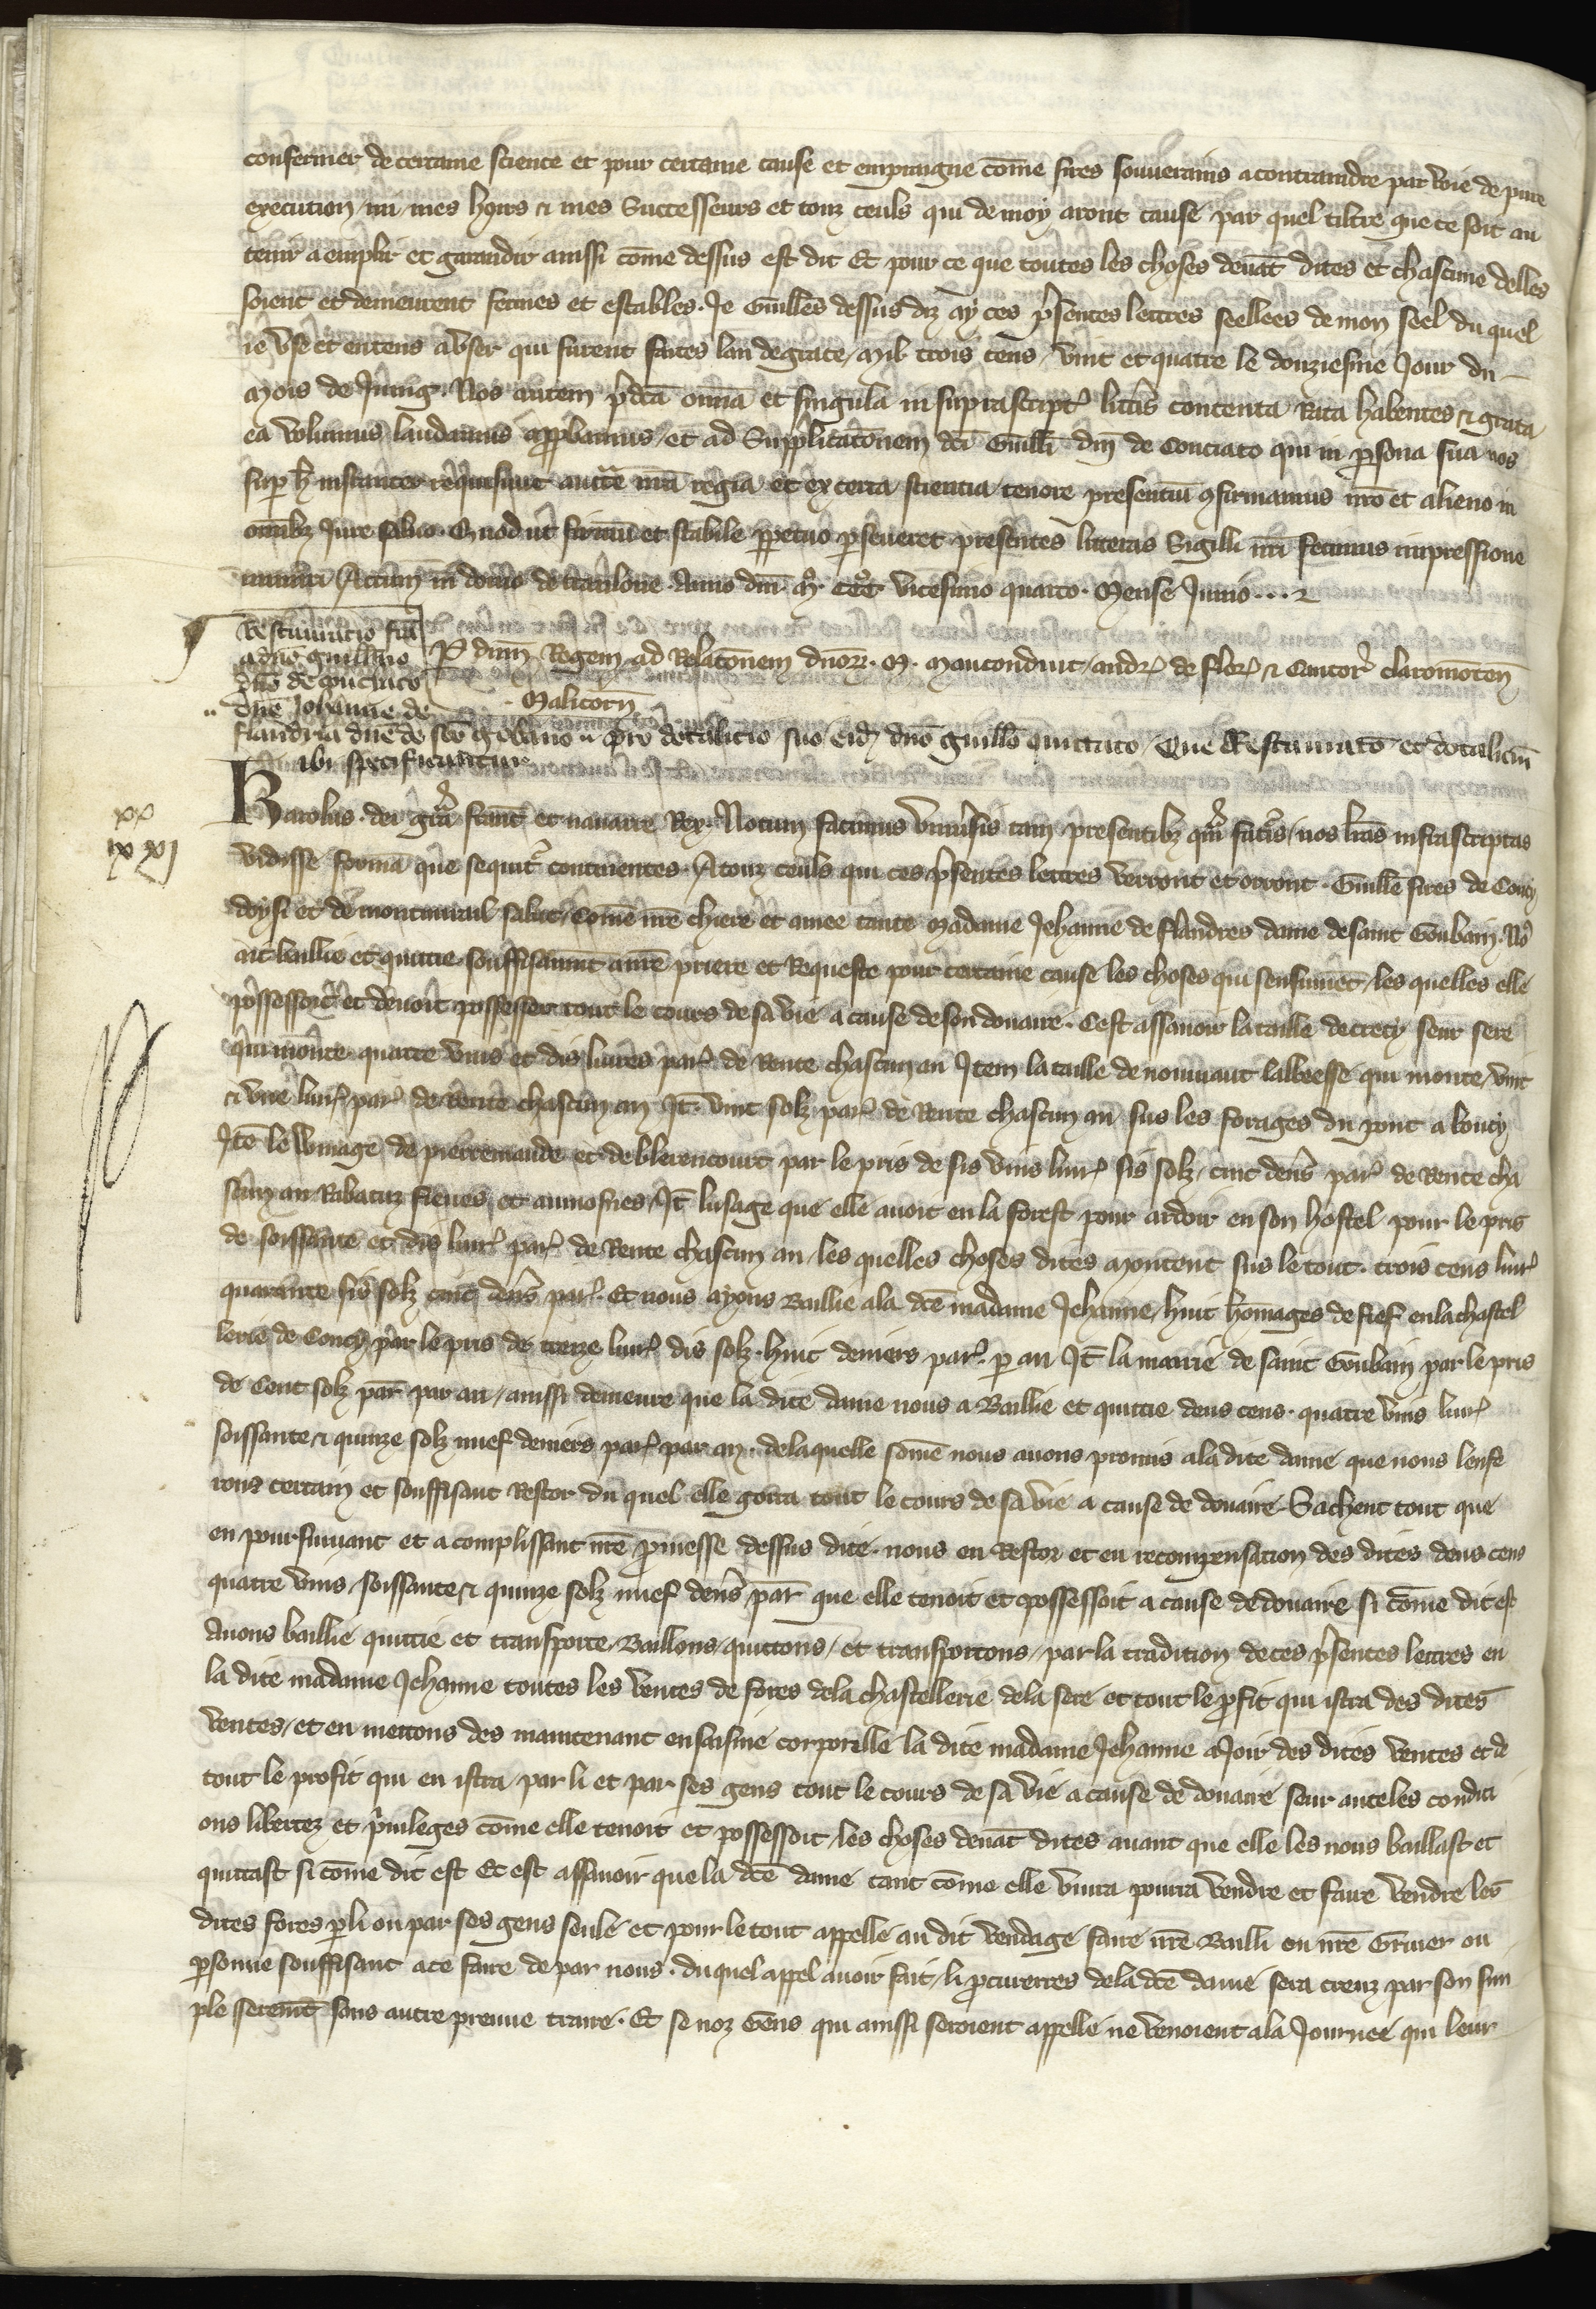 confermer de certaine science et pour certaine cause et empraigne cōme sires souverains a contraindre par voie de pure
execution / mi / mes hoirs & mes Successeurs et touz ceuls qui de moy aront cause par quel tiltre que ce soit au
tenir aemplir et garandir aussi cōme dessus est dit Et pour ce que toutes les choses devāt dites et chascune delles
soient et demeurent fermes et estables. Je Guillēs dessus diz ay ces p̄sentes lettres seellees de mon seel du quel
ie vse et entens a vser qui furent faites lan de grace / mil trois cens / vint et quatre le douziesme Jour du
mois de Juing. Nos autem p̄dcā om̄ia et singula in suprascript' litt̄is contenta Rata habentes & grata
ea volumus laudamus app̄bamus / et ad Supplicatōnem dc̄i Guill̄i dn̄i de Conciaco qui in p̄sona sua nos
sup h̄ instanter requisiuit auctē nr̄a regia et ex certa scientia tenore presentiū 9firmamus nr̄o et alieno in
om̄ibz Jure saluo. Quod ut firmū et stabile ppetuo p̄seueret presentes litteras Sigilli nr̄i fecimus impressione
muniri Actum in domo de tranlone. Anno dn̄i mo. ccco. vicesimo quarto. Mense Junio...
Restauracio fc̄a
a dn̄o guill̄mo
dn̄o de conciaco
dn̄e Johanne de
P dnm Regem ad Relatōnem dnoꝝ. M. Mauconduit / andr' de flor' & Cantor' claromoten̄
Malicorn̄
flandria dn̄e de scō gobano pro dotalicio suo eidē dn̄o guill̄o quittato / Que Restauratō et dotaliciū
ibi specificantur
Karolus. dei gr̄a franc̄ et nauarre Rex. Notum facimus vniuersis tam presentibz q̄m futuris / nos lr̄as infrascriptas
vidisse formā que sequit̄ continentes. A touz ceuls qui ces p̄sentes lettres verront et orront. Guillē sires de Coucy
doysi et de montmirail salut / Cōme nr̄e chiere et amee tante Madame Jehanne de flandres dame de saint Goubain. No9
ait baillie et quittie souffisaumt a nr̄e priere et Requeste pour certaine cause les choses qui sensuiuēt / les quelles elle
possessoit et deuoit possesser tout le cours de sa vie a cause de son douaire. Cest assauoir la taille de crecy seur sere
qui monte quatre vins et dis liures par' de Rente chascun an Item la taille de nouuiaut labbeesse qui monte / vint
& vne liur' par' de rente chascun an It̄. vint solz par' de Rente chascun an sus les forages du pont a Coucy
Itē le winage de pierremande et de blerencourt par le pris de sis vins liur' sis solz / cinc den̄s par' de Rente cha
scun an Rabatuz fieues et aumosnes / It̄ lusage que elle auoit en la forest pour ardoir en son hostel pour le pris
de soissante et dis liur' par' de Rente chascun an / les quelles choses dites montent sus le tout. trois cens liur'
quarante sis solz cinc den̄s par'. Et nous ayons Baillie a la dc̄e madame Jehanne / huit hōmages de fief en la chastel
lerie de Coucy par le pris de treze liur' dis solz. huit deniers par'. p an It̄ la mairie de saint Goubain par le pris
de Cent solz par̄ par an / aussi demeure que la dite dame nous a Baillie et quittie deus cens. quatre vins liur'
soissante & quinze solz nuef deniers par' par an. de laquelle sōme nous auons promis a la dite dame que nous lenfe
rons certain et souffisant Restor du quel elle gorra tout le cours de sa vie a cause de douaire. Sachent tout que
en poursiuuant et acomplissant nr̄e p̄messe dessus dite. nous en Restor et en recompensation des dites deus cens
quatre vins / soissante & quinze solz nuef den̄s par̄ que elle tenoit et possessoit a cause de douaire si cōme dit est
Auons baillie quittie et transporte / Baillons / quittons / et transportons / par la tradition de ces p̄sentes lettres en
la dite madame Jehanne toutes les ventes de fores de la chastellerie de la fere et tout le p̄fit qui istra des dites
ventes / et en mettons des maintenant en saisine corporelle la dite madame Jehanne a Joir des dites ventes et de
tout le profit qui en istra / par li et par ses gens tout le cours de sa vie a cause de douaire seur auteles conditi
ons libertez et p̄uileges cōme elle tenoit et possessoit / les choses deuāt dites auant que elle les nous baillast et
quittast si cōme dit est Et est assauoir que la dc̄e dame tant cōme elle viura pourra vendre et faire vendre les
dites fores p̄ li ou par ses gens seule et pour le tout appelle au dit vendage faire nr̄e Bailli ou nr̄e Gruier ou
p̄sonne souffisant a ce faire de par nous. du quel appel auoir fait / li p̄curerres de la dc̄e dame sera creuz par son sim
ple seremēt sans autre preuue traire. Et se noz Gēns qui aussi seroient appelle ne venoient a la Journee qui leur